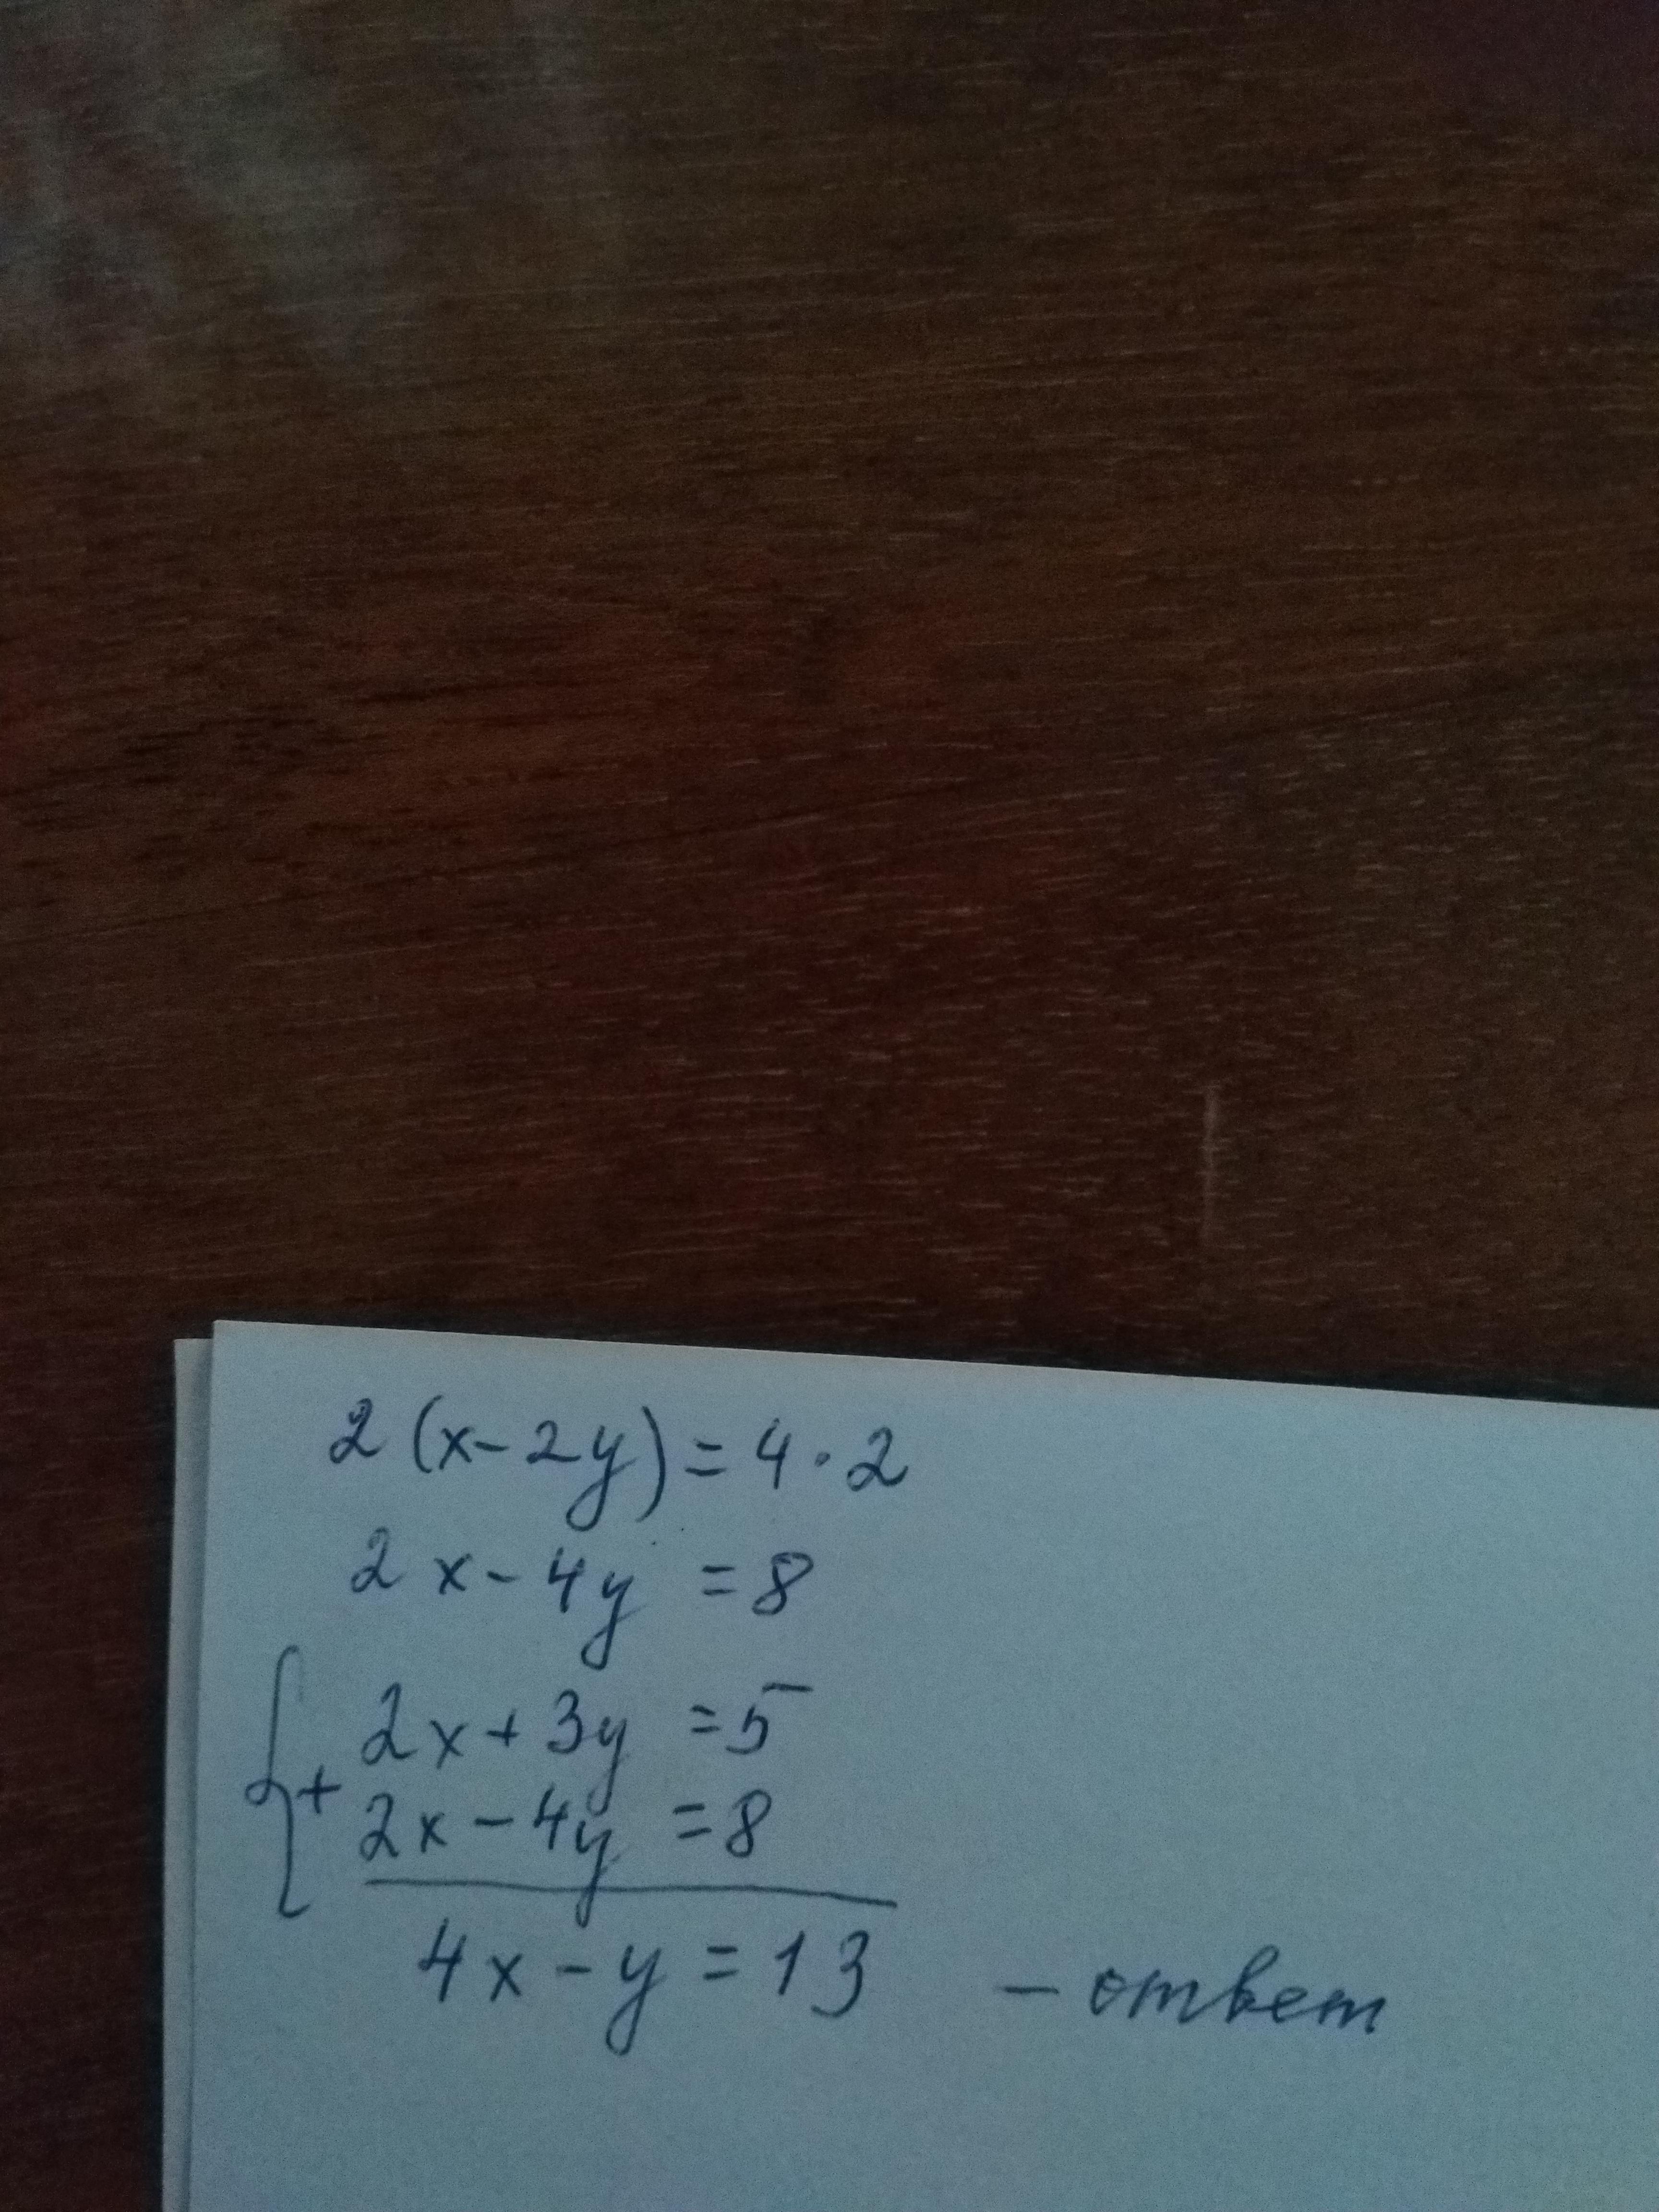 2 (x - 2y) = 4 · 2
2x - 4y = 8
2x + 3y = 5
+
2x - 4y = 8
4x - y = 13 - ответ